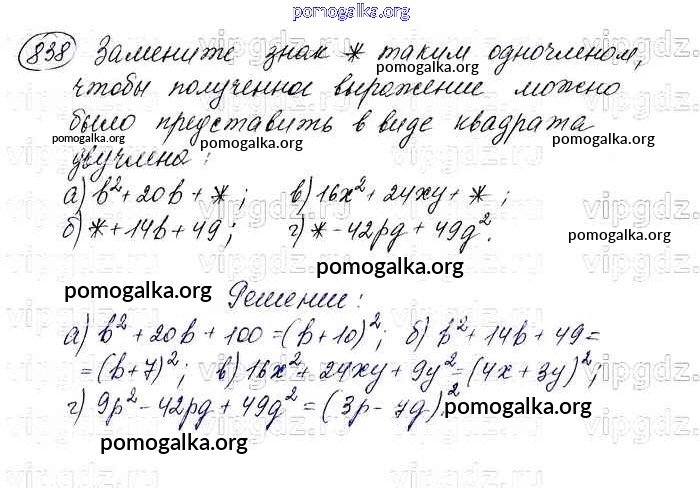 pomogalka.org
838 Замените знак * таким одночленом,
pomogalka.org
чтобы полученное выражение можно
pomogalka.org
было представить в виде квадрата
pomogalka.org
pomogalka.org
двучлена:
а) b² + 20b + *; в) 16x² + 24xy + *;
б) * + 14b + 49; г) * - 42pq + 49q².
pomogalka.org
pomogalka.org
pomogalka.org
Решение:
а) b² + 20b + 100 = (b + 10)²; б) b² + 14b + 49 =
= (b + 7)²; в) 16x² + 24xy + 9y² = (4x + 3y)²;
г) 9p² - 42pq + 49q² = (3p - 7q)².
pomogalka.org
pomogalka.org